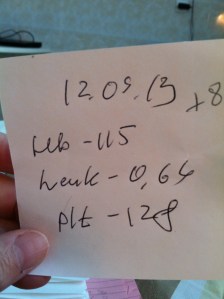 12.09.13 +8
Hb - 115
Leuk - 0,64
plt - 128